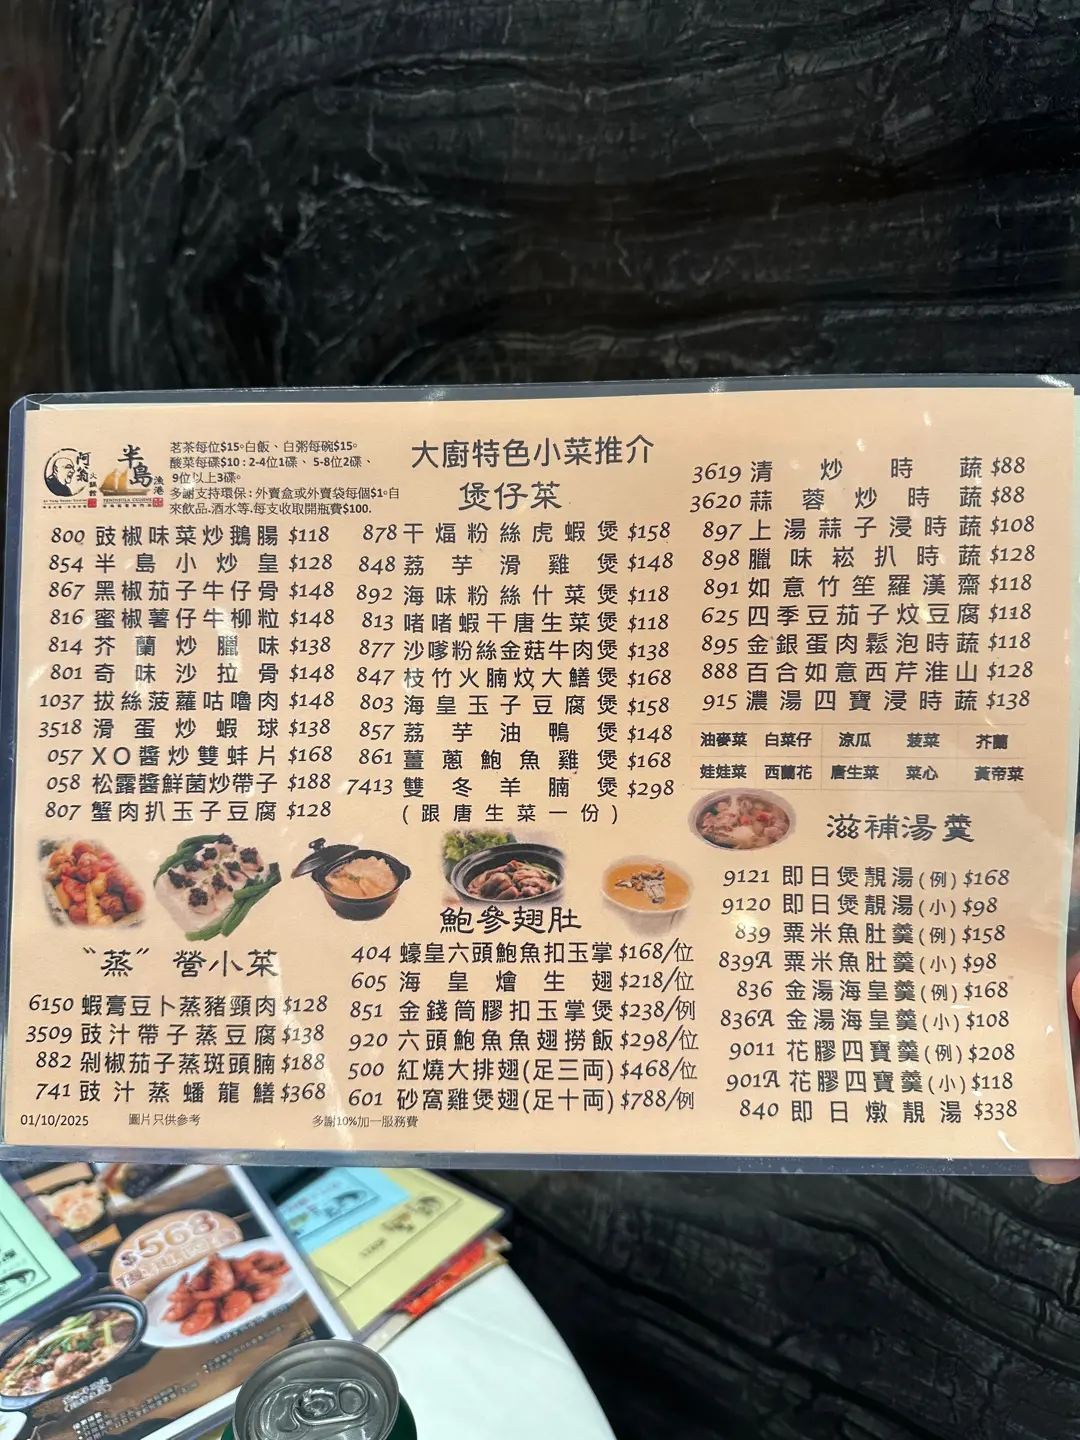 阿翁
火鍋館
半島
漁港
PENINSULA CUISINE
茗茶每位$15。白飯、白粥每碗$15。
酸菜每碟$10 : 2-4位1碟、 5-8位2碟、
9位以上3碟。
多謝支持環保 : 外賣盒或外賣袋每個$1。自
來飲品.酒水等.每支收取開瓶費$100.
大廚特色小菜推介
800 豉椒味菜炒鵝腸 $118
854 半島小炒皇 $128
867 黑椒茄子牛仔骨 $148
816 蜜椒薯仔牛柳粒 $148
814 芥蘭炒臘味 $138
801 奇味沙拉骨 $148
1037 拔絲菠蘿咕嚕肉 $148
3518 滑蛋炒蝦球 $138
057 XO醬炒雙蚌片 $168
058 松露醬鮮菌炒帶子 $188
807 蟹肉扒玉子豆腐 $128
“蒸” 營小菜
6150 蝦膏豆卜蒸豬頸肉 $128
3509 豉汁帶子蒸豆腐 $138
882 剁椒茄子蒸斑頭腩 $188
741 豉汁蒸蟠龍鱔 $368
煲仔菜
878 干煏粉絲虎蝦煲 $158
848 荔芋滑雞煲 $148
892 海味粉絲什菜煲 $118
813 啫啫蝦干唐生菜煲 $118
877 沙嗲粉絲金菇牛肉煲 $138
847 枝竹火腩炆大鱔煲 $168
803 海皇玉子豆腐煲 $158
857 荔芋油鴨煲 $148
861 薑蔥鮑魚雞煲 $168
7413 雙冬羊腩煲 $298
(跟唐生菜一份)
鮑參翅肚
404 蠔皇六頭鮑魚扣玉掌 $168/位
605 海皇燴生翅 $218/位
851 金錢筒膠扣玉掌煲 $238/例
920 六頭鮑魚魚翅撈飯 $298/位
500 紅燒大排翅(足三両) $468/位
601 砂窩雞煲翅(足十両) $788/例
3619 清炒時蔬 $88
3620 蒜蓉炒時蔬 $88
897 上湯蒜子浸時蔬 $108
898 臘味崧扒時蔬 $128
891 如意竹笙羅漢齋 $118
625 四季豆茄子炆豆腐 $118
895 金銀蛋肉鬆泡時蔬 $118
888 百合如意西芹淮山 $128
915 濃湯四寶浸時蔬 $138
油麥菜 白菜仔 涼瓜 菠菜 芥蘭
娃娃菜 西蘭花 唐生菜 菜心 黃帝菜
滋補湯羹
9121 即日煲靚湯(例) $168
9120 即日煲靚湯(小) $98
839 粟米魚肚羹(例) $158
839A 粟米魚肚羹(小) $98
836 金湯海皇羹(例) $168
836A 金湯海皇羹(小) $108
9011 花膠四寶羹(例) $208
901A 花膠四寶羹(小) $118
840 即日燉靚湯 $338
01/10/2025 圖片只供參考 多謝10%加一服務費
$568